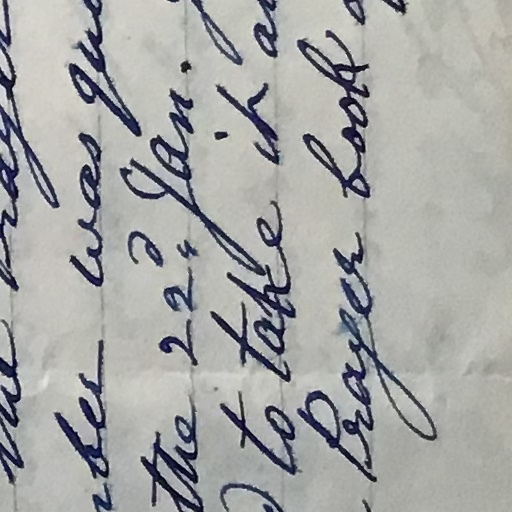 the Prayer
mber was quo
the 22d. Jan.
to take it a
Prayer book of